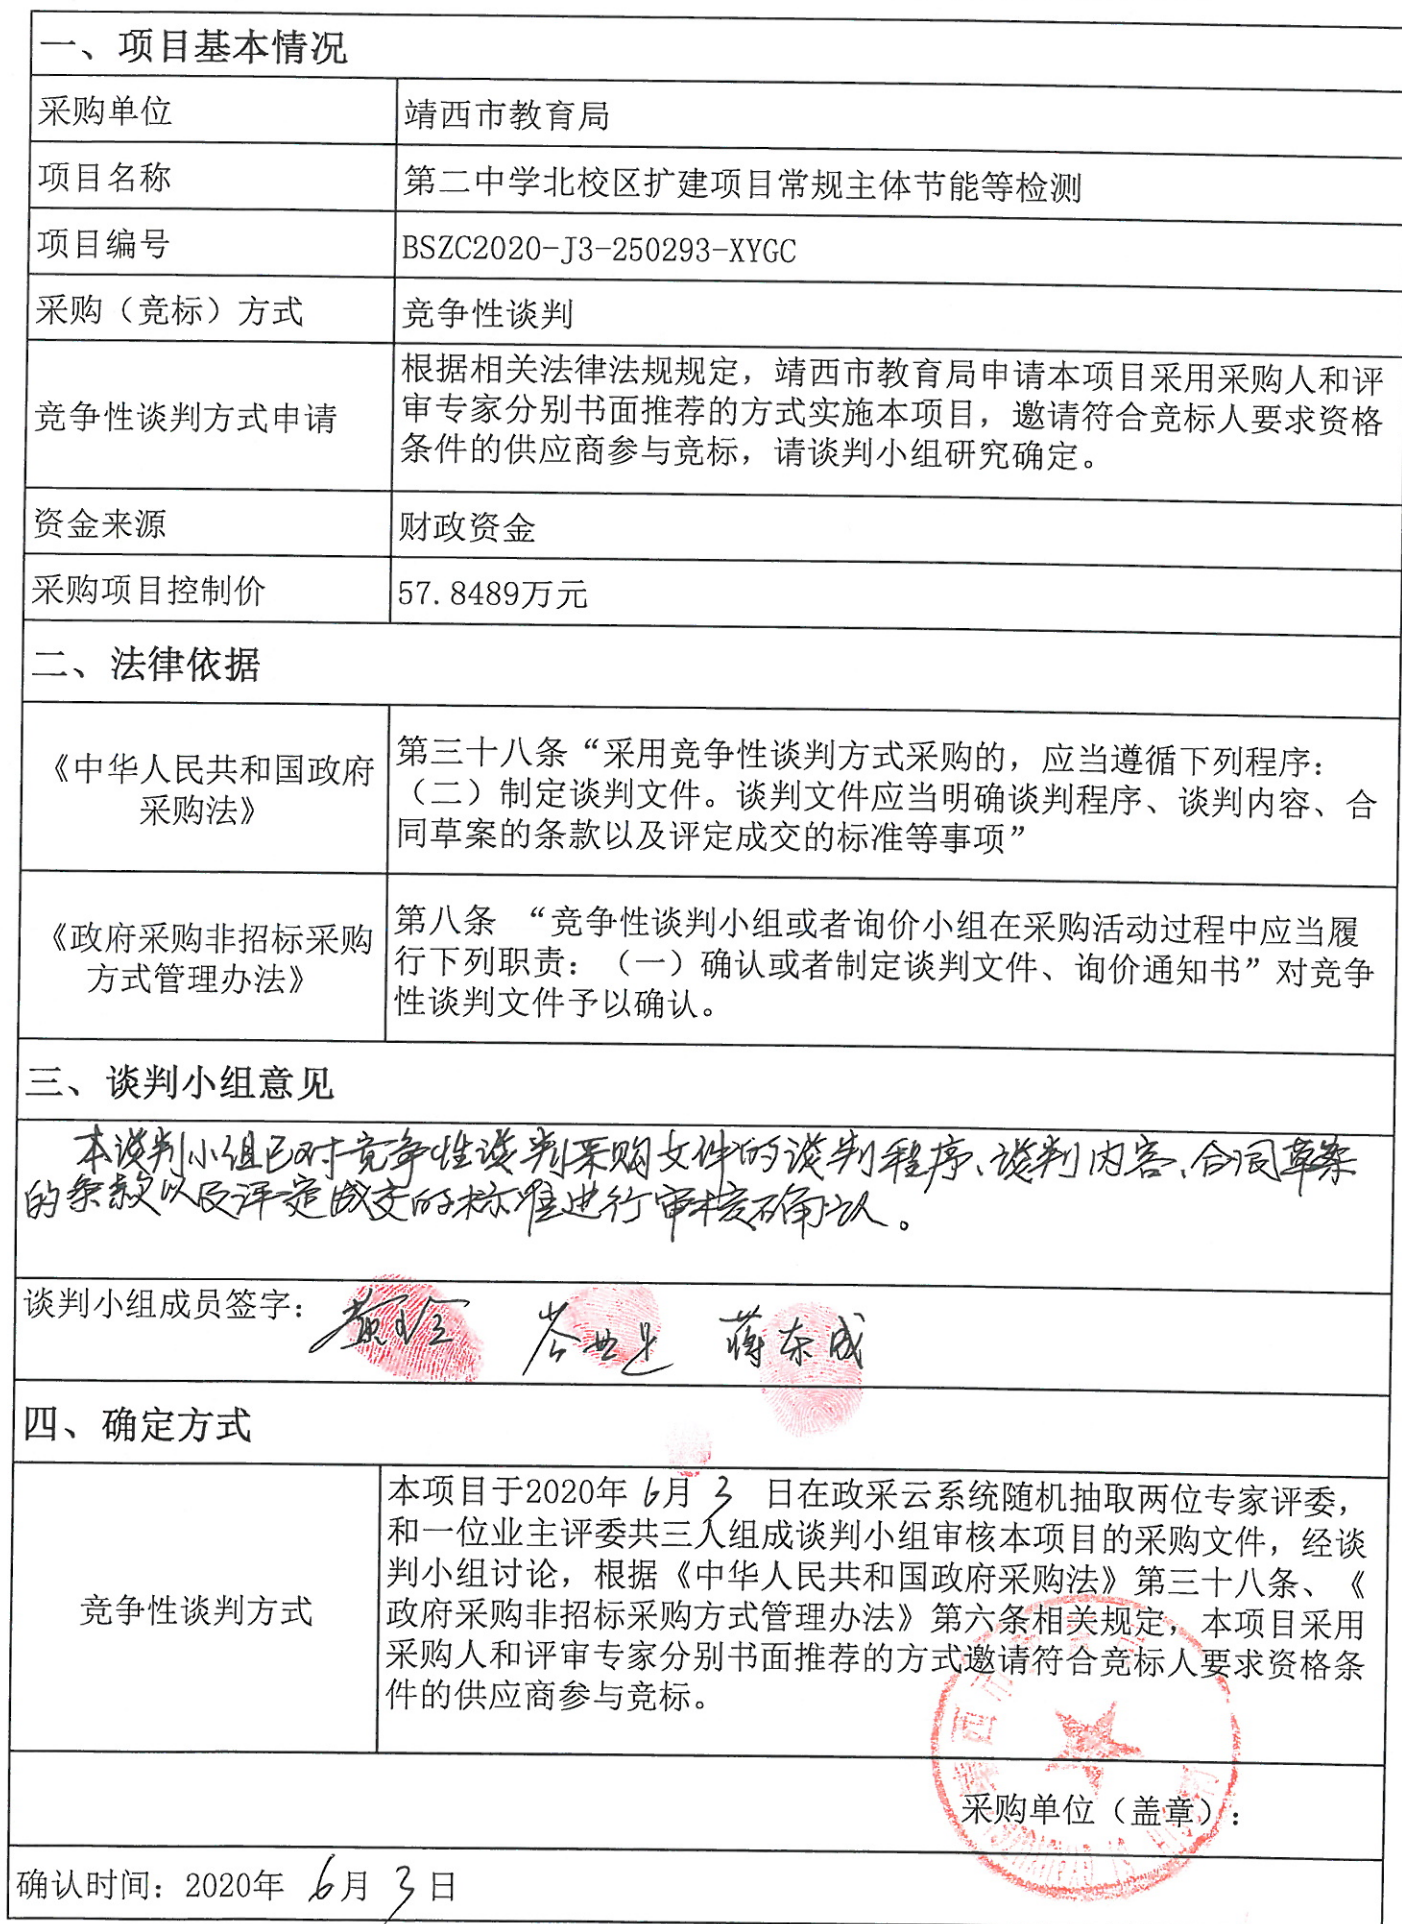 一、项目基本情况
采购单位
靖西市教育局
项目名称
第二中学北校区扩建项目常规主体节能等检测
项目编号
BSZC2020-J3-250293-XYGC
采购（竞标）方式
竞争性谈判
竞争性谈判方式申请
根据相关法律法规规定，靖西市教育局申请本项目采用采购人和评
审专家分别书面推荐的方式实施本项目，邀请符合竞标人要求资格
条件的供应商参与竞标，请谈判小组研究确定。
资金来源
财政资金
采购项目控制价
57.8489万元
二、法律依据
《中华人民共和国政府
采购法》
第三十八条“采用竞争性谈判方式采购的，应当遵循下列程序：
（二）制定谈判文件。谈判文件应当明确谈判程序、谈判内容、合
同草案的条款以及评定成交的标准等事项”
《政府采购非招标采购
方式管理办法》
第八条 “竞争性谈判小组或者询价小组在采购活动过程中应当履
行下列职责：（一）确认或者制定谈判文件、询价通知书”对竞争
性谈判文件予以确认。
三、谈判小组意见
本谈判小组已对竞争性谈判采购文件的谈判程序、谈判内容、合同草案
的条款以及评定成交的标准进行审核确认。
谈判小组成员签字：
蒋东成
四、确定方式
竞争性谈判方式
本项目于2020年6月3日在政采云系统随机抽取两位专家评委，
和一位业主评委共三人组成谈判小组审核本项目的采购文件，经谈
判小组讨论，根据《中华人民共和国政府采购法》第三十八条、《
政府采购非招标采购方式管理办法》第六条相关规定，本项目采用
采购人和评审专家分别书面推荐的方式邀请符合竞标人要求资格条
件的供应商参与竞标。
采购单位（盖章）：
确认时间：2020年6月3日